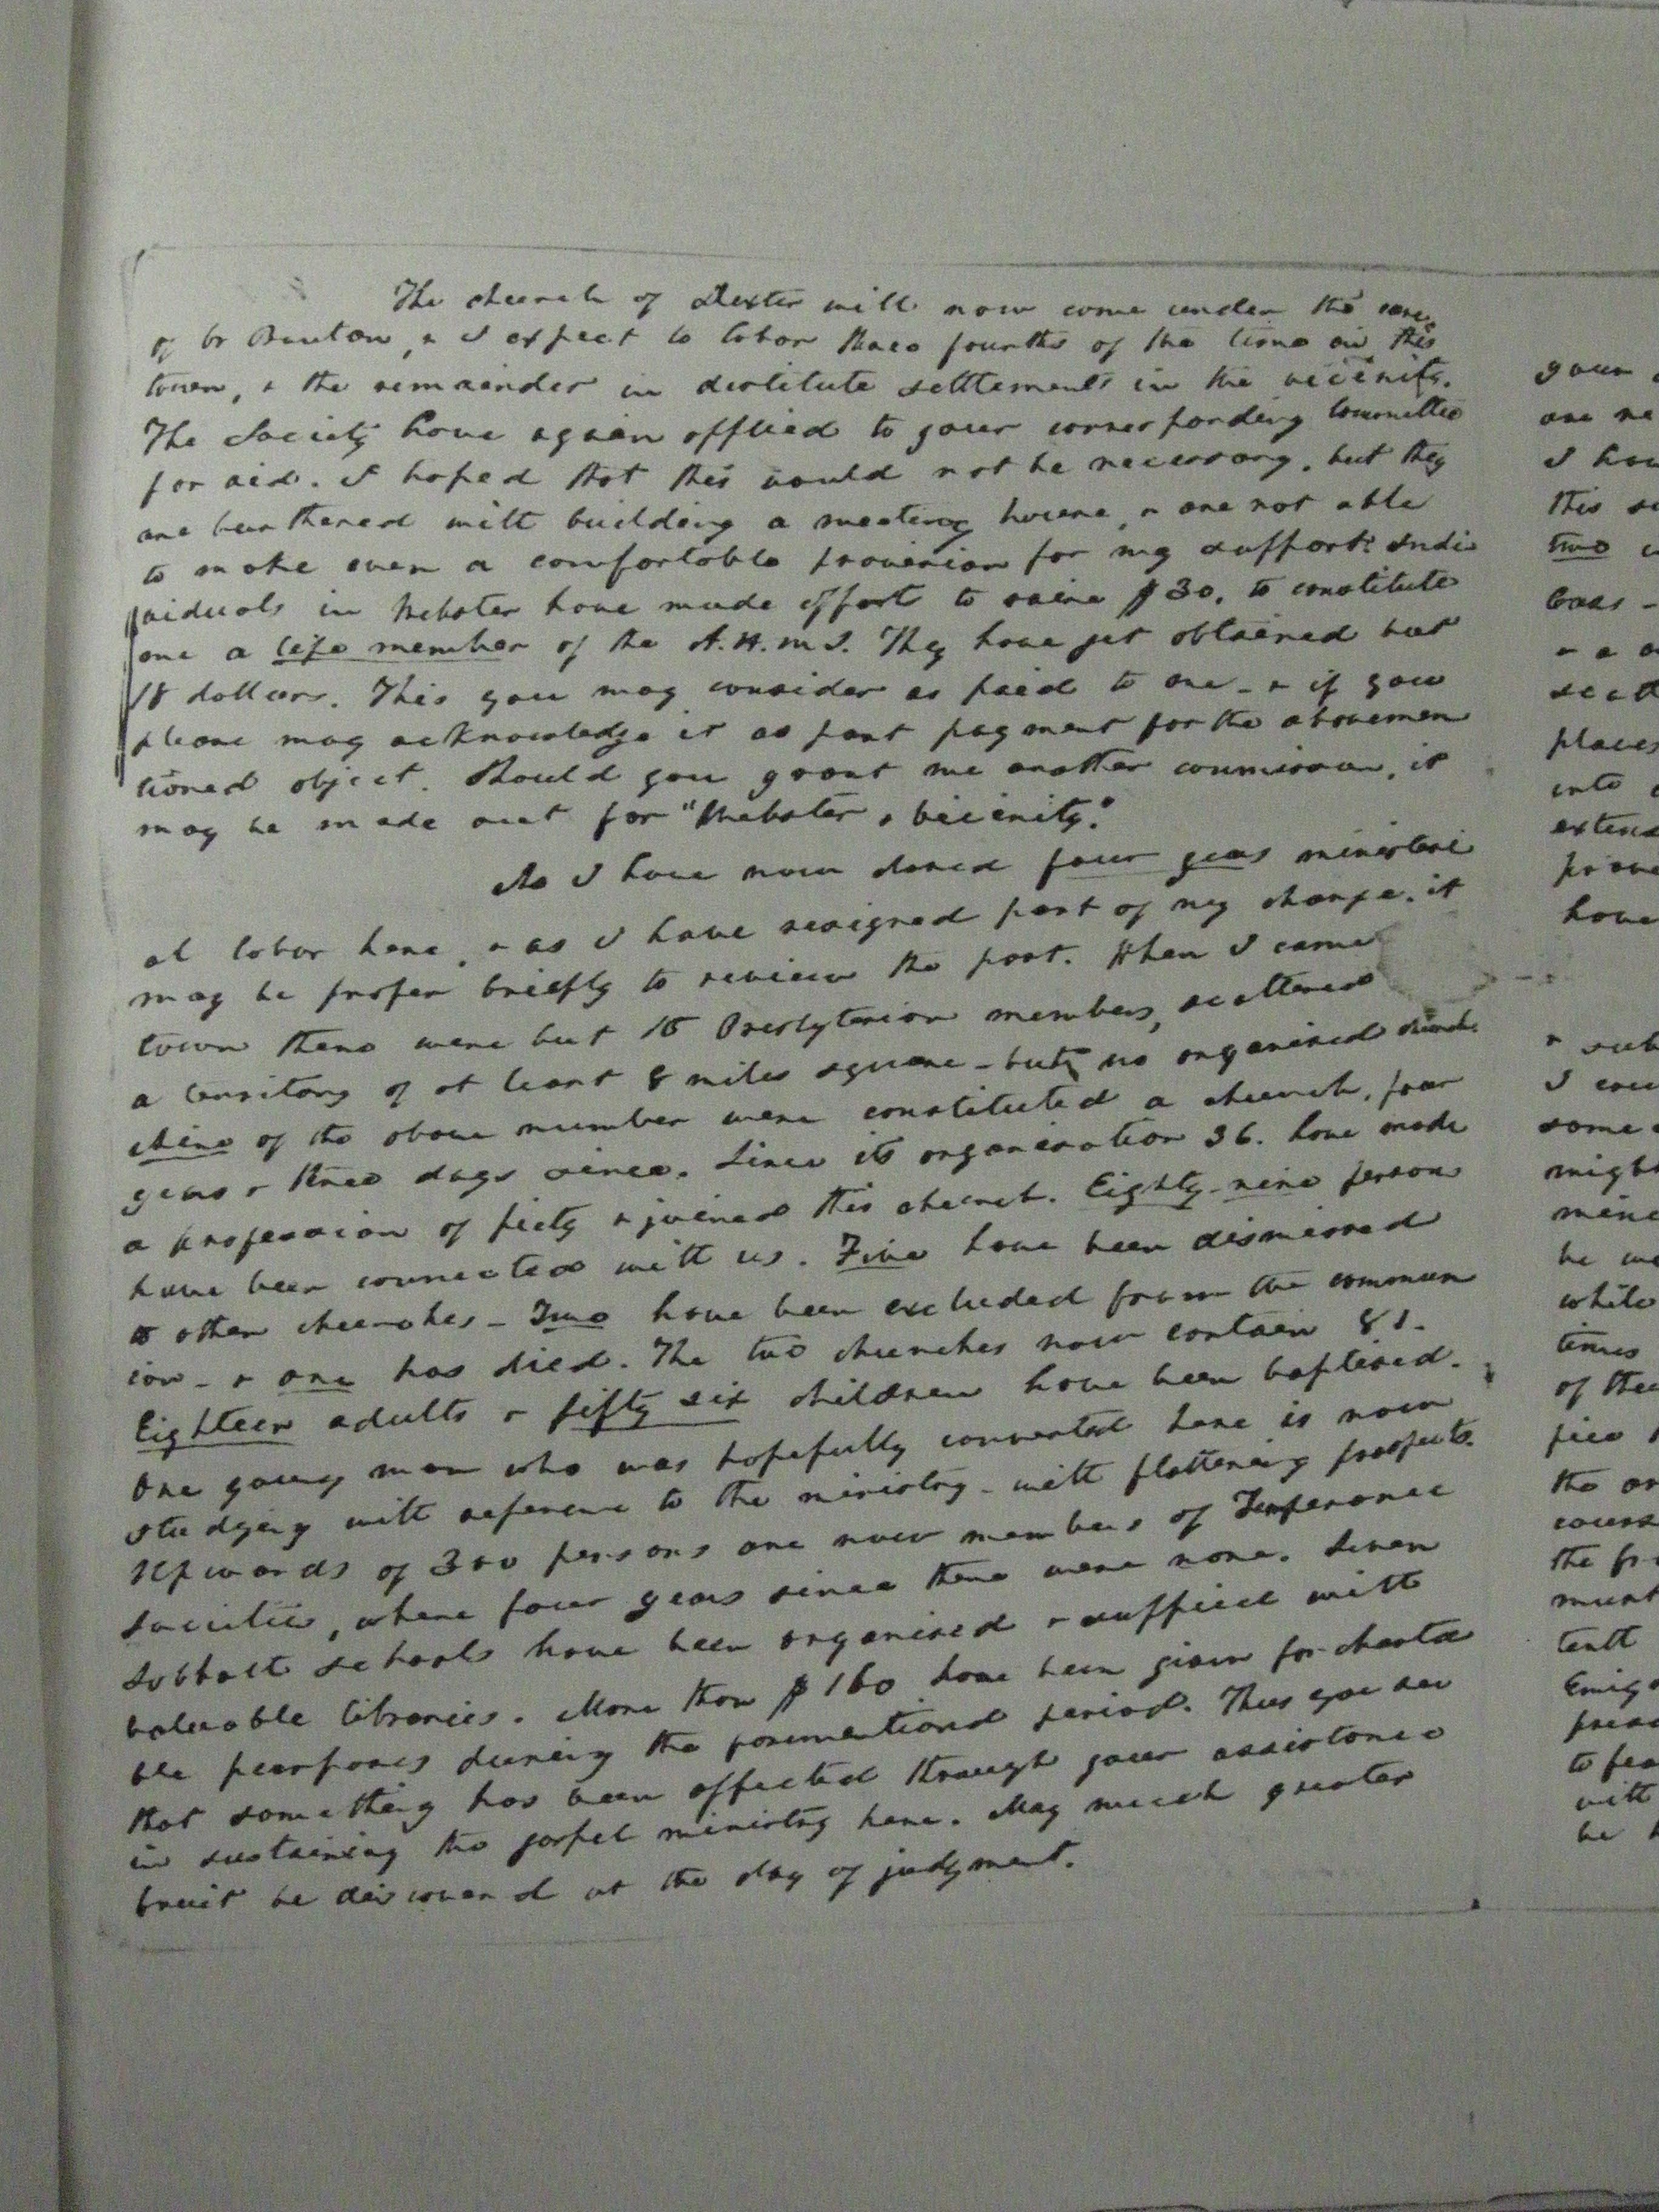 The church of Dexter will now come under the care
of br Benton, & I expect to labor three fourths of the time in this
town, & the remainder in destitute settlements in the vicinity.
The Society have again applied to your corresponding Committee
for aid. I hoped that this would not be necessary, but they
are burthened with building a meeting house, & are not able
to make even a comfortable provision for my support. Indi
viduals in Webster have made effort to raise $30, to constitute
me a life member of the A.H.M.S. They have yet obtained but
18 dollars. This you may consider as paid to me - & if you
please may acknowledge it as part payment for the abovemen
tioned object. Should you grant me another commission, it
may be made out for "Webster & vicinity."
As I have now closed four years ministeri
al labor here, & as I have resigned part of my charge, it
may be proper briefly to review the past. When I came
town there were but 18 Presbyterian members, scattered
a territory of at least 8 miles square - but no organised church.
Nine of the above number were constituted a church, four
years & three days since. Since its organisation 36. have made
a profession of piety & joined this church. Eighty-nine person
have been connected with us. Five have been dismissed
to other churches - Two have been excluded from the commun
ion - & one has died. The two churches now contain 81.
Eighteen adults & fifty six children have been baptised.
One young man who was hopefully converted here is now
studying with reference to the ministry - with flattering prospects.
Upwards of 300 persons are now members of Temperance
Societies, where four years since there were none. Seven
Sabbath schools have been organised & supplied with
valuable libraries. More than $160 have been given for charita
ble purposes during the forementioned period. Thus you see
that something has been effected through your assistance
in sustaining the gospel ministry here. May much greater
fruit be discovered at the day of judgment.
your
are
I
this
two
places
into
have
&
I
some
might
be
while
times
of
the
the
must
to
with
be